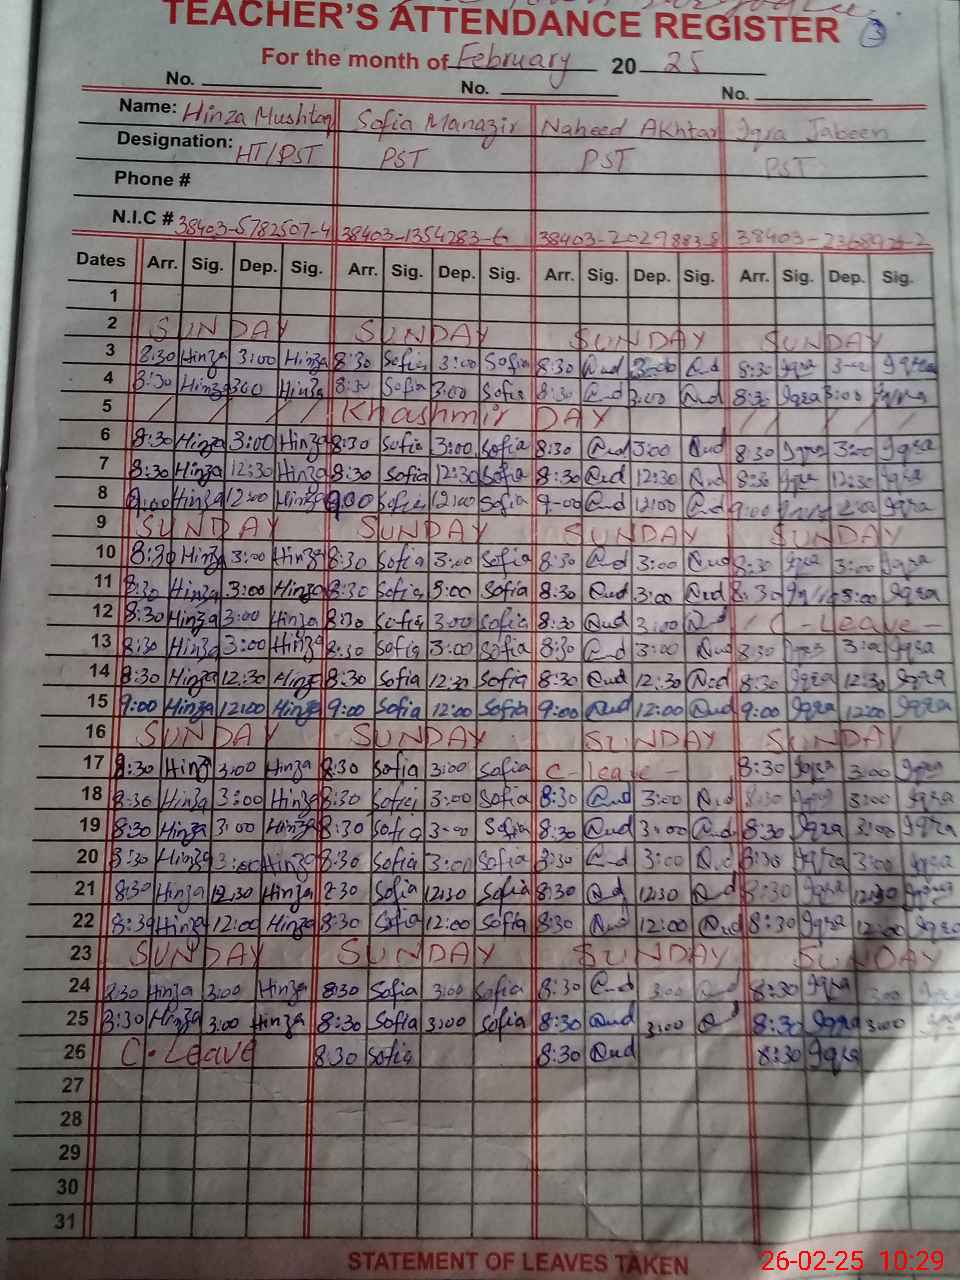 TEACHER'S ATTENDANCE REGISTER 3
For the month of February 20 25
No. No. No.
Name: Hinza Mushtaq Sofia Manazir Naheed Akhtar Iqra Jabeen
Designation: HT/PST PST PST PST
Phone #
N.I.C # 38403-5782507-4 38403-1354283-6 38403-2029883-8 38403-2368924-2
Dates Arr. Sig. Dep. Sig. Arr. Sig. Dep. Sig. Arr. Sig. Dep. Sig. Arr. Sig. Dep. Sig.
1
2 SUNDAY SUNDAY SUNDAY SUNDAY
3 8:30 Hinza 3:00 Hinza 8:30 Sofia 3:00 Sofia 8:30 Qud 3:00 Qud 8:30 Iqra 3:00 Iqra
4 8:30 Hinza 3:00 Hinza 8:30 Sofia 3:00 Sofia 8:30 Qud 3:00 Qud 8:30 Iqra 3:00 Iqra
5 / / / / Khashmir DAY / / / /
6 8:30 Hinza 3:00 Hinza 8:30 Sofia 3:00 Sofia 8:30 Qud 3:00 Qud 8:30 Iqra 3:00 Iqra
7 8:30 Hinza 12:30 Hinza 8:30 Sofia 12:30 Sofia 8:30 Qud 12:30 Qud 8:30 Iqra 12:30 Iqra
8 9:00 Hinza 12:00 Hinza 9:00 Sofia 12:00 Sofia 9-00 Qud 12:00 Qud 9:00 Iqra 12:00 Iqra
9 SUNDAY SUNDAY SUNDAY SUNDAY
10 8:30 Hinza 3:00 Hinza 8:30 Sofia 3:00 Sofia 8:30 Qud 3:00 Qud 8:30 Iqra 3:00 Iqra
11 8:30 Hinza 3:00 Hinza 8:30 Sofia 3:00 Sofia 8:30 Qud 3:00 Qud 8:30 Iqra 3:00 Iqra
12 8:30 Hinza 3:00 Hinza 8:30 Sofia 3:00 Sofia 8:30 Qud 3:00 Qud C-Leave-
13 8:30 Hinza 3:00 Hinza 8:30 Sofia 3:00 Sofia 8:30 Qud 3:00 Qud 8:30 Iqra 3:00 Iqra
14 8:30 Hinza 12:30 Hinza 8:30 Sofia 12:30 Sofia 8:30 Qud 12:30 Qud 8:30 Iqra 12:30 Iqra
15 9:00 Hinza 12:00 Hinza 9:00 Sofia 12:00 Sofia 9:00 Qud 12:00 Qud 9:00 Iqra 12:00 Iqra
16 SUNDAY SUNDAY SUNDAY SUNDAY
17 8:30 Hinza 3:00 Hinza 8:30 Sofia 3:00 Sofia C-leave- 8:30 Iqra 3:00 Iqra
18 8:30 Hinza 3:00 Hinza 8:30 Sofia 3:00 Sofia 8:30 Qud 3:00 Qud 8:30 Iqra 3:00 Iqra
19 8:30 Hinza 3:00 Hinza 8:30 Sofia 3:00 Sofia 8:30 Qud 3:00 Qud 8:30 Iqra 3:00 Iqra
20 8:30 Hinza 3:00 Hinza 8:30 Sofia 3:00 Sofia 8:30 Qud 3:00 Qud 8:30 Iqra 3:00 Iqra
21 8:30 Hinza 12:30 Hinza 8:30 Sofia 12:30 Sofia 8:30 Qud 12:30 Qud 8:30 Iqra 12:30 Iqra
22 8:30 Hinza 12:00 Hinza 8:30 Sofia 12:00 Sofia 8:30 Qud 12:00 Qud 8:30 Iqra 12:00 Iqra
23 SUNDAY SUNDAY SUNDAY SUNDAY
24 8:30 Hinza 3:00 Hinza 8:30 Sofia 3:00 Sofia 8:30 Qud 3:00 Qud 8:30 Iqra 3:00 Iqra
25 8:30 Hinza 3:00 Hinza 8:30 Sofia 3:00 Sofia 8:30 Qud 3:00 Qud 8:30 Iqra 3:00 Iqra
26 C. Leave 8:30 Sofia 8:30 Qud 8:30 Iqra
27
28
29
30
31
STATEMENT OF LEAVES TAKEN
26-02-25 10:29